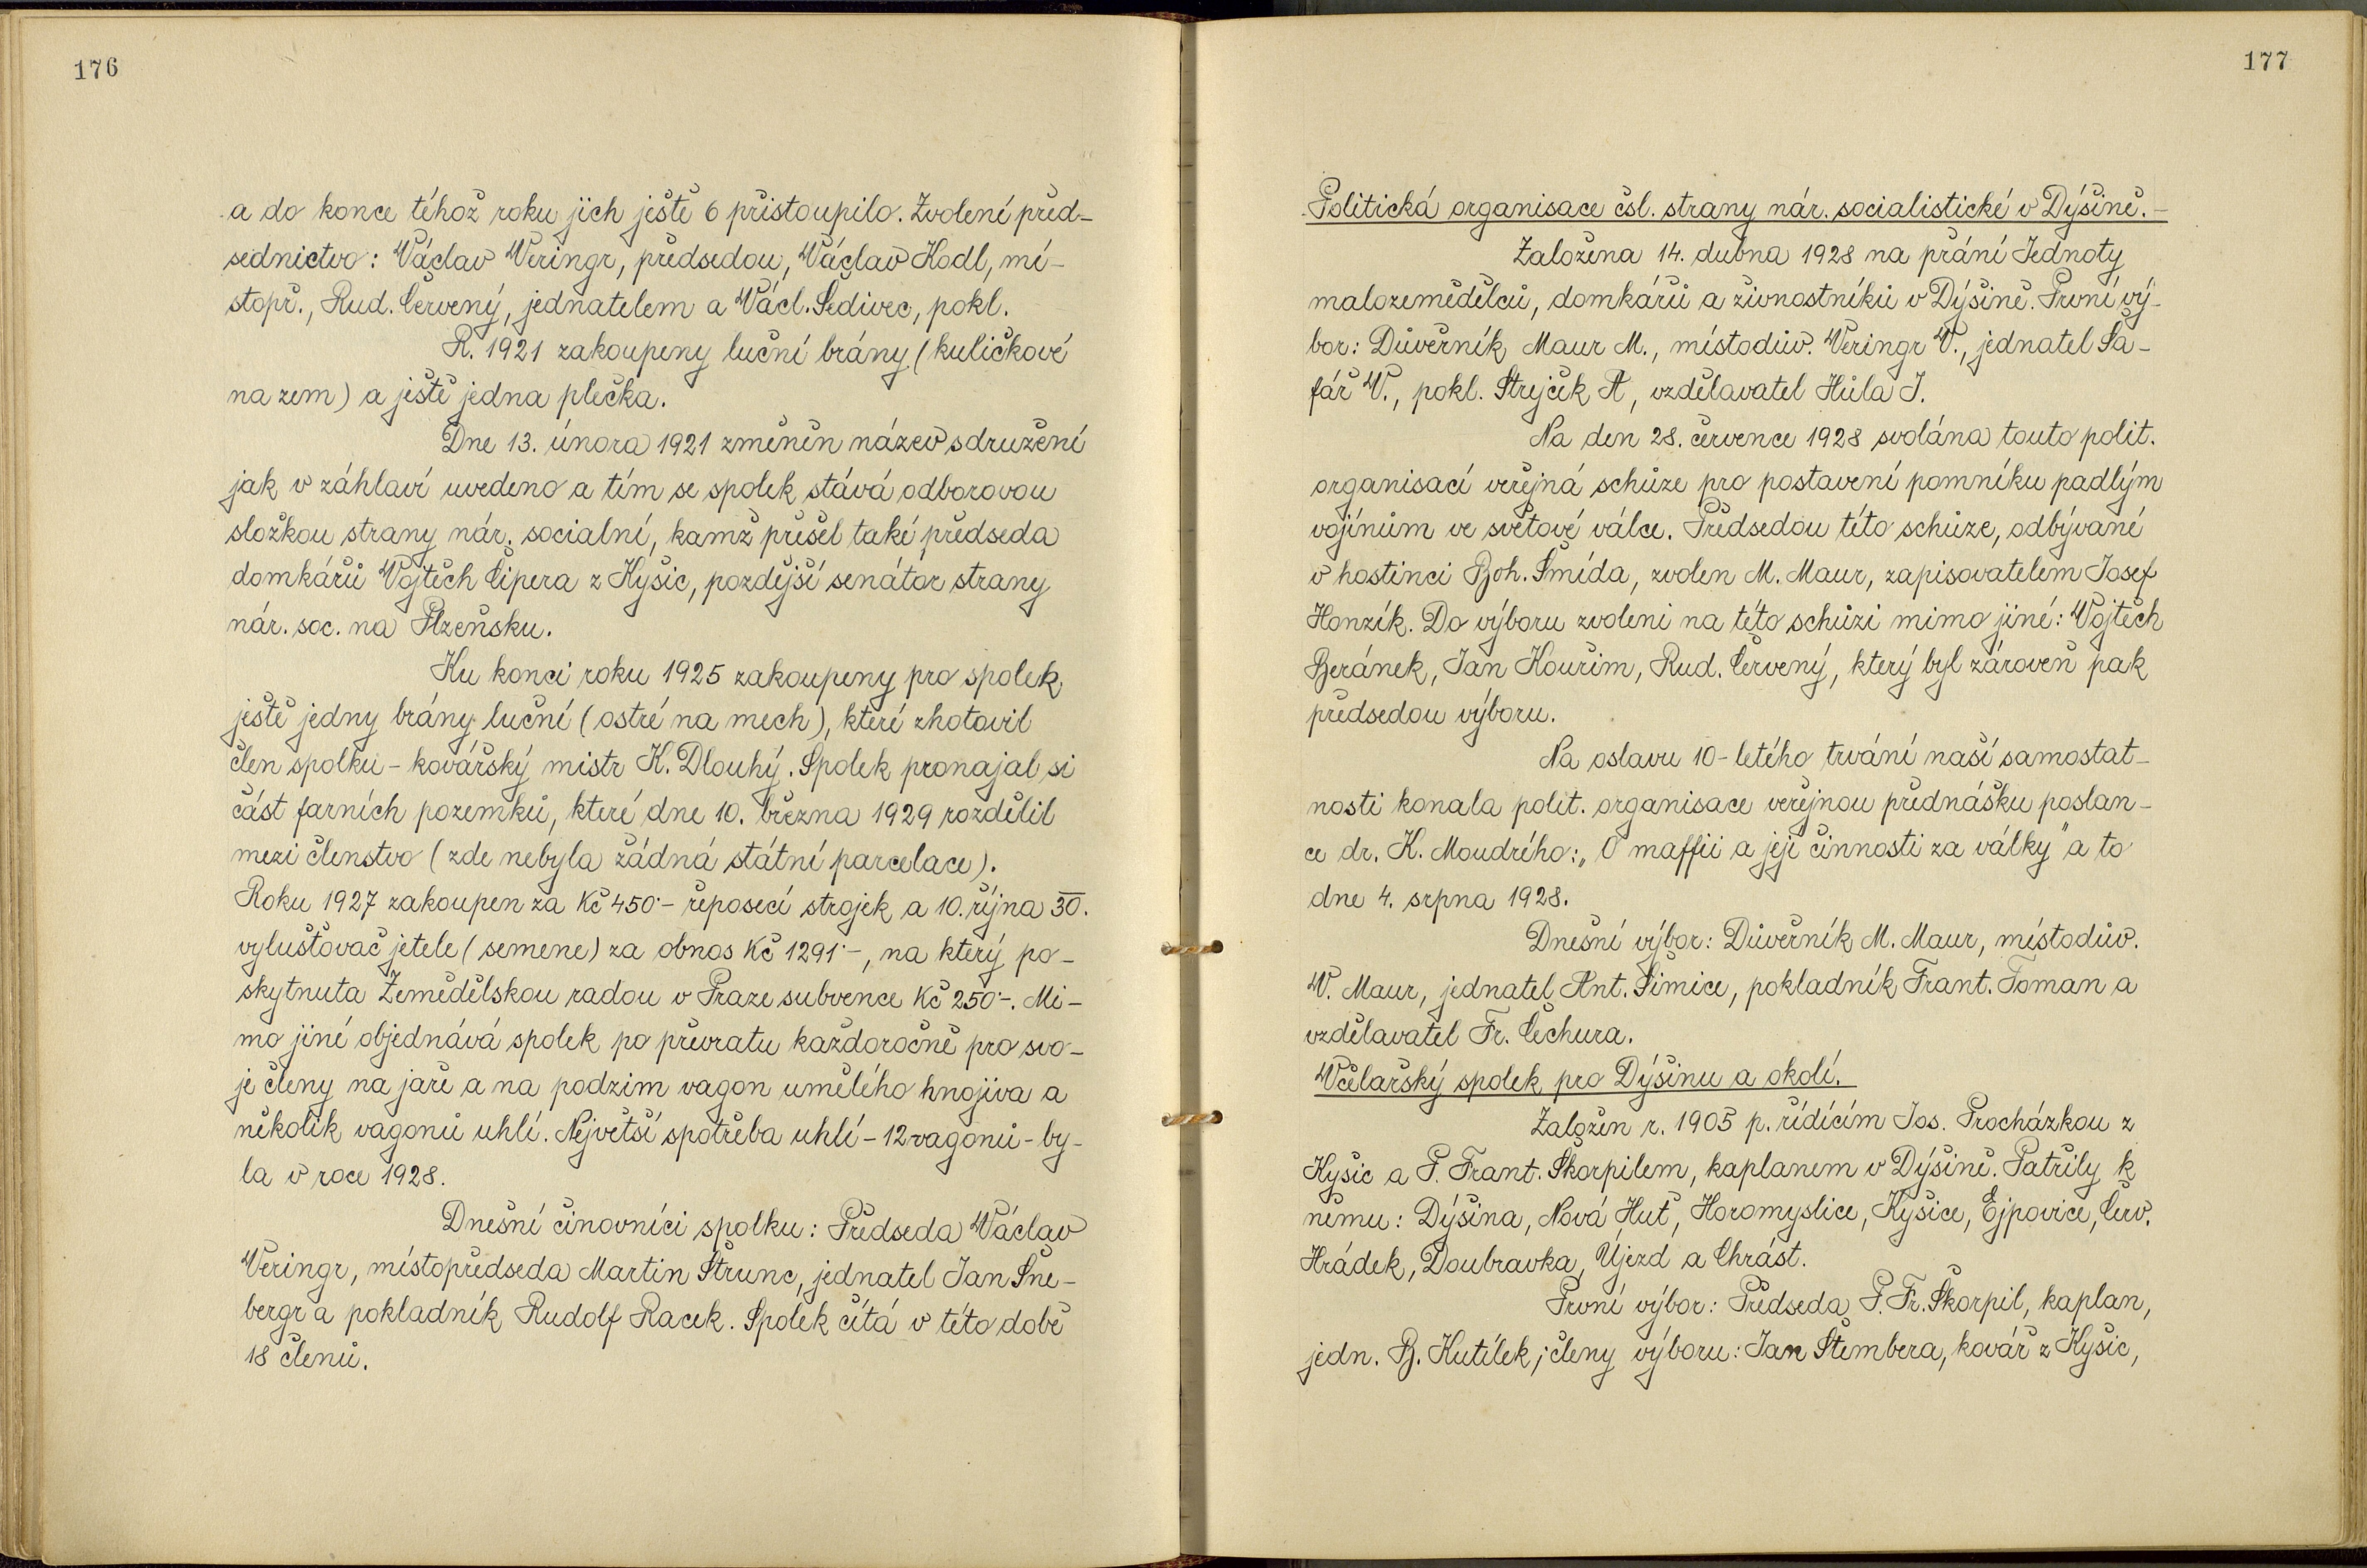 176
a do konce téhož roku jich ještě 6 přistoupilo. Zvolení před-
sednictvo: Václav Veringr, předsedou, Václav Kodl, mí-
stopř., Rud. Červený, jednatelem a Václ. Šedivec, pokl.
R. 1921 zakoupeny luční brány (kuličkové
na zem) a ještě jedna plečka.
Dne 13. února 1921 změněn název sdružení
jak v záhlaví uvedeno a tím se spolek stává odborovou
složkou strany nár. socialní, kamž přešel také předseda
domkářů Vojtěch Čipera z Kyšic, pozdější senátor strany
nár. soc. na Plzeňsku.
Ku konci roku 1925 zakoupeny pro spolek
ještě jedny brány luční (ostré na mech), které zhotovil
člen spolku - kovářský mistr K. Dlouhý. Spolek pronajal si
část farních pozemků, které dne 10. března 1929 rozdělil
mezi členstvo (zde nebyla žádná státní parcelace).
Roku 1927 zakoupen za Kč 450·- řeposecí strojek a 10. října 30.
vylušťovač jetele (semene) za obnos Kč 1291·-, na který po-
skytnuta Zemědělskou radou v Praze subvence Kč 250·-. Mi-
mo jiné objednává spolek po převratu každoročně pro svo-
je členy na jaře a na podzim vagon umělého hnojiva a
několik vagonů uhlí. Největší spotřeba uhlí - 12 vagonů - by-
la v roce 1928.
Dnešní činovníci spolku: Předseda Václav
Veringr, místopředseda Martin Štrunc, jednatel Jan Šne-
bergr a pokladník Rudolf Racek. Spolek čítá v této době
18 členů.
177
Politická organisace čsl. strany nár. socialistické v Dýšině.-
Založena 14. dubna 1928 na přání Jednoty
malozemědělců, domkářů a živnostníků v Dýšině. První vý-
bor: Důvěrník Maur M., místodův. Veringr V., jednatel Ša-
fář V., pokl. Strejček A, vzdělavatel Hůla J.
Na den 28. července 1928 svolána touto polit.
organisací veřejná schůze pro postavení pomníku padlým
vojínům ve světové válce. Předsedou této schůze, odbývané
v hostinci Boh. Šmída, zvolen M. Maur, zapisovatelem Josef
Honzík. Do výboru zvoleni na této schůzi mimo jiné: Vojtěch
Beránek, Jan Kouřim, Rud. Červený, který byl zároveň pak
předsedou výboru.
Na oslavu 10-letého trvání naší samostat-
nosti konala polit. organisace veřejnou přednášku poslan-
ce dr. K. Moudrého: „O maffii a její činnosti za války" a to
dne 4. srpna 1928.
Dnešní výbor: Důvěrník M. Maur, místodův.
V. Maur, jednatel Ant. Šimice, pokladník Frant. Toman a
vzdělavatel Fr. Čechura.
Včelařský spolek pro Dýšinu a okolí.
Založen r. 1905 p. řídícím Jos. Procházkou z
Kyšic a P. Frant. Škorpilem, kaplanem v Dýšině. Patřily k
němu: Dýšina, Nová Huť, Horomyslice, Kyšice, Ejpovice, Červ.
Hrádek, Doubravka, Újezd a Chrást.
První výbor: Předseda P. Fr. Škorpil, kaplan,
jedn. B. Kutílek; členy výboru: Jan Štembera, kovář z Kyšic,